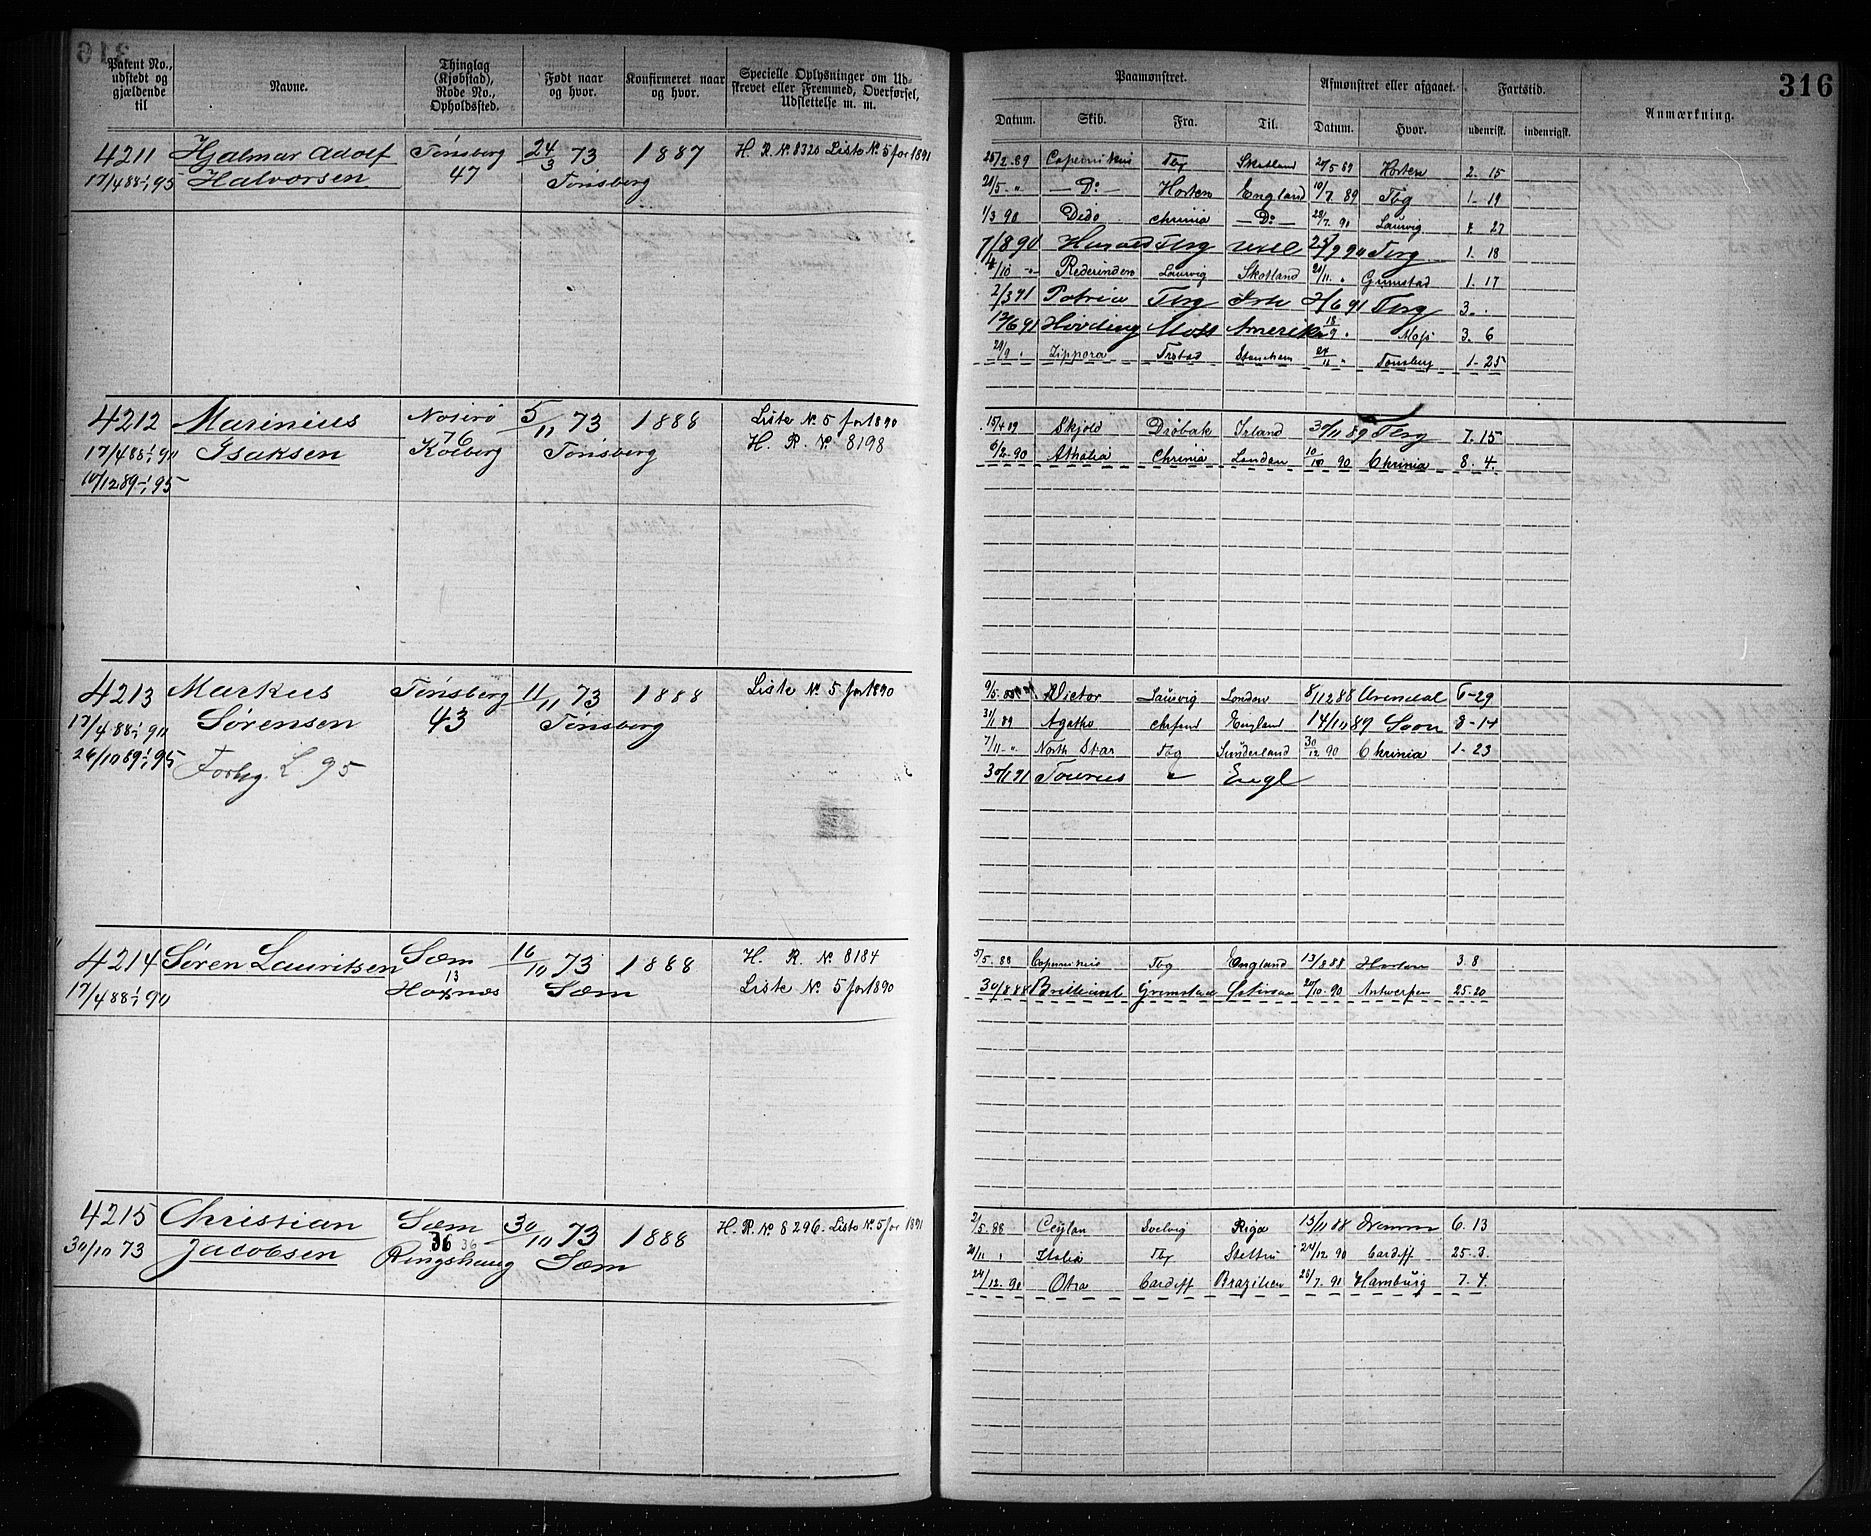 316
Patent No., udstedt og gjældende til
Navne.
Thinglag (Kjøbstad), Rode No., Opholdssted.
Født naar og hvor.
Konfirmeret naar og hvor.
Specielle Oplysninger om Udskrevet eller Fremmed, Overførsel, Udslettelse m. m.
Paamønstret.
Afmønstret eller afgaaet.
Fartstid.
Anmærkning.
Datum. Skib. Fra. Til. Datum. Hvor. udenrigsk. indenrigsk.
4211 Hjalmar Adolf Tønsberg 24/3 73 1887 H. R. No 8320 Liste No. 5 for 1891
17/4 88-1/1 95 Halvorsen 47 Tønsberg
25/2 89 Copernikus Tbg Skotland 20/5 89 Horten 2. 15
20/5 " Do Horten England 19/7 89 Tbg 1- 19
1/3 90 Dido chrinia Do 28/7 90 Laurvig 4 27
7/8 90 Harald Tbrg 25/9 90 Tbrg 1. 18
4/10 " Rederinden Laurvig Skotland 21/11 " Grimstad 1. 17
2/3 91 Patria Tbrg 2/6 91 Tbrg 3.
12/6 91 Høvding Moss Amerika 18/9 " Moss 3. 6
29/9 " Zippora Frstad 24/11 " Tønsberg 1- 25
4212 Marinius Nøterø 5/11 73 1888 Liste No. 5 for 1890
17/4 88-1/1 90 Isaksen 76 Kolberg Tønsberg H. R. No 8198
10/12 89-1/1 95
15/4 89 Skjold Drøbak Irland 30/11 89 Tbrg 7. 15
6/2. 90 Athalia Chrinia London 10/10 90 Chrinia 8. 4.
4213 Markus Tønsberg 11/11 73 1888 Liste No. 5 for 1890
17/4 88-1/1 90 Sørensen 43 Tønsberg
26/10 89-1/1 95 Forbg. L. 95
9/5. Victor Laurvig London 8/12 88 Arendal 6-29
31/1 89 Agatha England 14/10 89 Soon 8-14
7/11. " North Star Tbg Sunderland 30/12 90 Chrinia 1- 23
30/1 91 Taurus " Engl
4214 Søren Lauritsen Sæm 16/10 73 1888 H. R. No 8184
17/4 88-1/1 90 13 Haxnæs Sæm Liste No. 5 for 1890
5/5. 88 Copernikus Tbg England 13/8 88 Horten 3. 8
30/8 88 Brilliant Grimstad 20/10. 90 Antwerpen 25. 20
4215 Christian Sæm 30/10 73 1888 H. R. No 8296. Liste No. 5 for 1891
30/10 73 Jacobsen 36 36 Ringshaug Sæm
2/5. 88 Ceylan Svelvig Riga 13/11 88 Drammen 6. 13
20/11 " Italia Tbg Stettin 24/12. 90 Cardiff 25. 3.
24/12. 90 Otra Cardiff Brazilien 28/7. 91 Hamburg 7. 4.